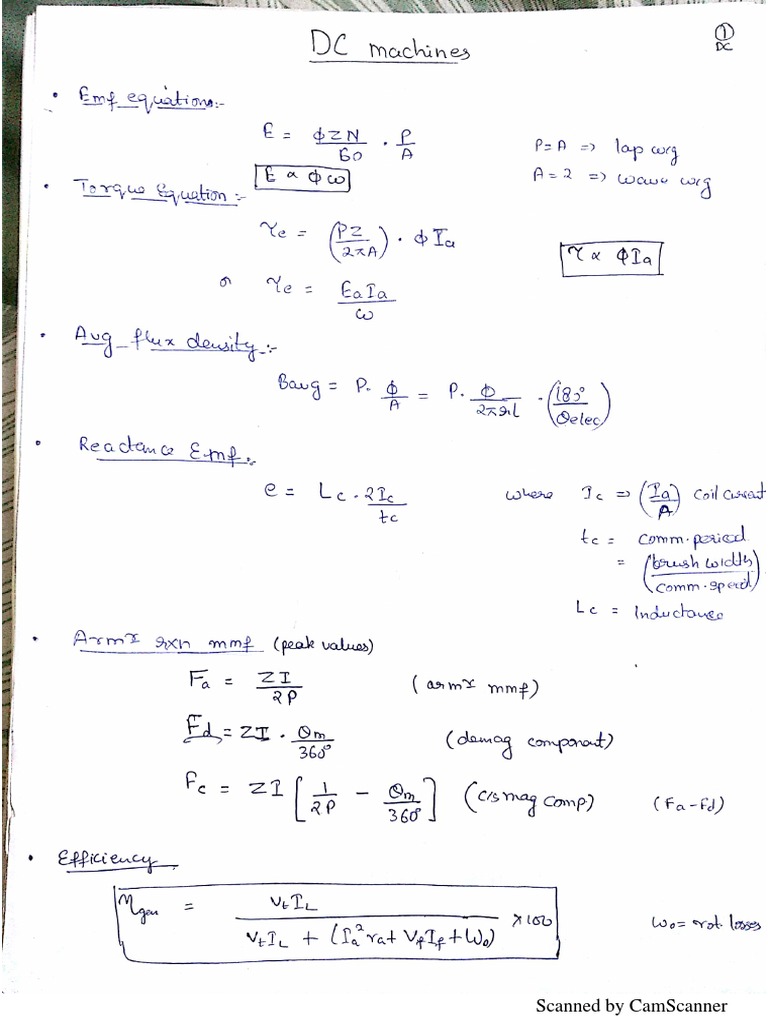 DC machines
① DC
• Emf equations:-
E = ϕZN/60 · P/A
P=A => lap wdg
E ∝ ϕω
A=2 => wave wdg
• Torque Equation:-
τe = (PZ/2πA) · ϕIa
τ ∝ ϕIa
or τe = EaIa/ω
• Avg flux density:-
Bavg = P·ϕ/A = P·ϕ/2πrl · (180°/θelec)
• Reactance Emf:-
e = Lc·2Ic/tc
where Ic => (Ia/A) coil current
tc = comm. period
= (brush width/comm. speed)
Lc = Inductance
• Armr rxn mmf (peak values)
Fa = ZI/2P (armr mmf)
Fd = ZI · θm/360° (demag component)
Fc = ZI [1/2P − θm/360°] (c/s mag comp) (Fa-Fd)
• Efficiency
ηgen = VtIL/VtIL + (Ia²ra + VfIf + Wo) ×100
Wo = rot. losses
Scanned by CamScanner